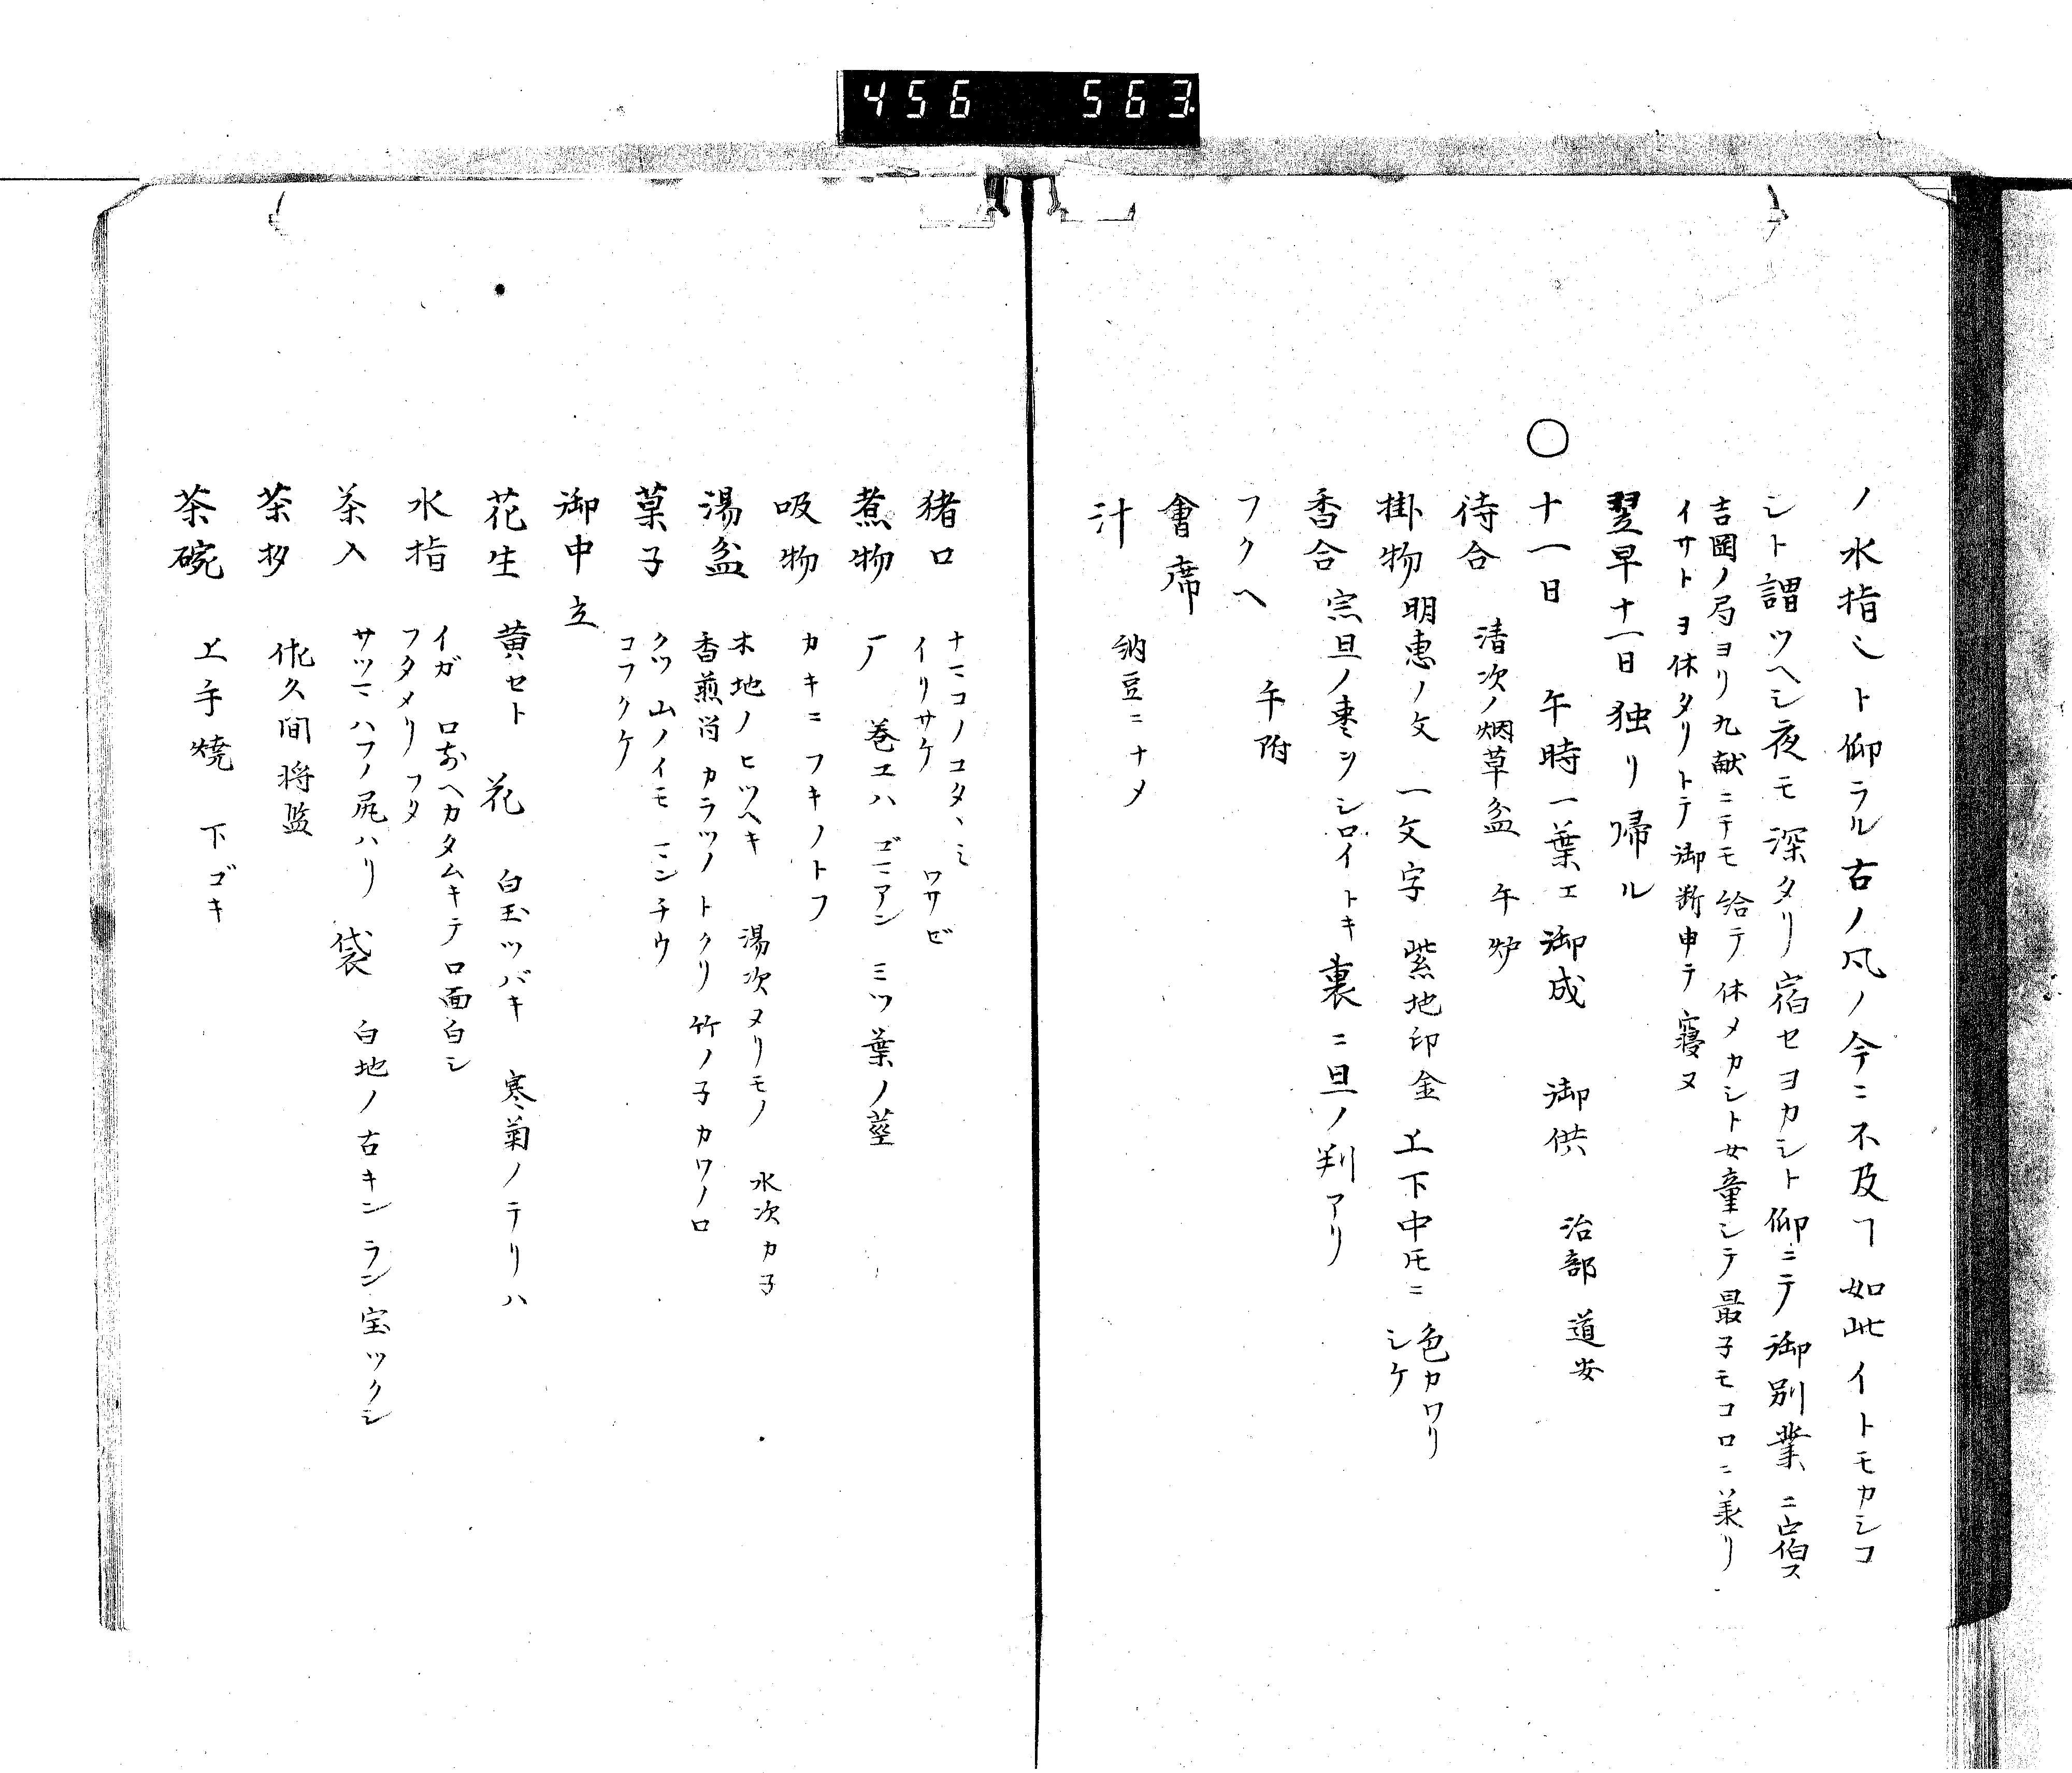 456 563
ノ水指シト仰ラル古ノ凡ノ今ニ不及ヿ如此イトモカシコ
シト謂ツヘシ夜モ深タリ宿セヨカシト仰ニテ御別業ニ宿ス
吉岡ノ局ヨリ九献ニテモ給テ休メカシト女童シテ最子モコロニ美リ
イサトヨ休タリトテ御断申テ寝ヌ
翌早十一日独リ帰ル
○十一日 午時一葉エ御成 御供 治部 道安
待合 清次ノ烟草盆 午炉
掛物 明恵ノ文 一文字 紫地印金 上下中𪜈ニ 色カワリ
シケ
香合 宗旦ノ棗ヲシロイトキ 裏ニ旦ノ判アリ
フクヘ 午附
會席
汁 納豆ニナメ
猪口 ナマコノコタヽミ
イリサケ ワサビ
煮物 厂 巻エハ ゴマアン ミツ葉ノ莖
吸物 カキニフキノトフ
湯盆 木地ノヒツヘキ 湯次ヌリモノ 水次カ子
香煎 尚カラツノトクリ 竹ノ子カワノロ
菓子 クツ 山ノイモ マンチウ
コフクケ
御中立
花生 黄セト 花 白玉ツバキ 寒菊ノテリハ
水指 イガ 口前ヘカタムキテ口面白シ
フタメリフタ
茶入 サツマハフノ尻ハリ 袋 白地ノ古キンラン宝ツクシ
茶杓 佐久間将監
茶碗 上手焼 下ゴキ